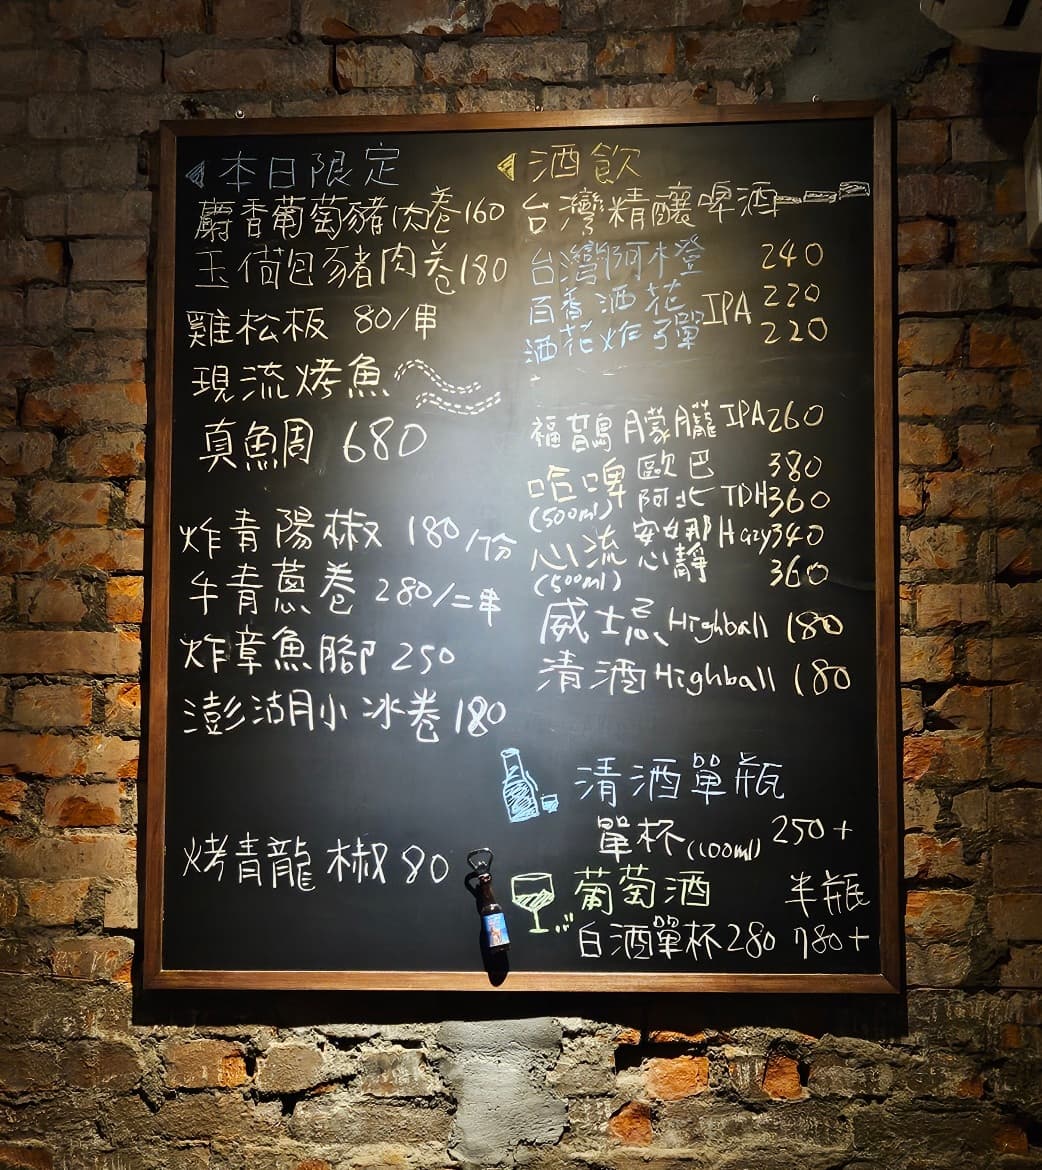 本日限定
麝香葡萄豬肉卷160
玉筍包豬肉卷180
雞松板 80/串
現流烤魚
真鯛 680
炸青陽椒 180/份
牛青蔥卷 280/二串
炸章魚腳 250
澎湖小冰卷 180
烤青龍椒 80
酒飲
台灣精釀啤酒
台灣阿橙 240
百香酒花 IPA 220
酒花炸彈 220
福爾摩 朦朧 IPA 260
哈啤 歐巴 380
(500ml) 阿北 TDH 360
心流 安娜 Hazy 340
(500ml) 心靜 360
威士忌 Highball 180
清酒 Highball 180
清酒單瓶
單杯(100ml) 250+
葡萄酒 半瓶
白酒單杯 280 780+